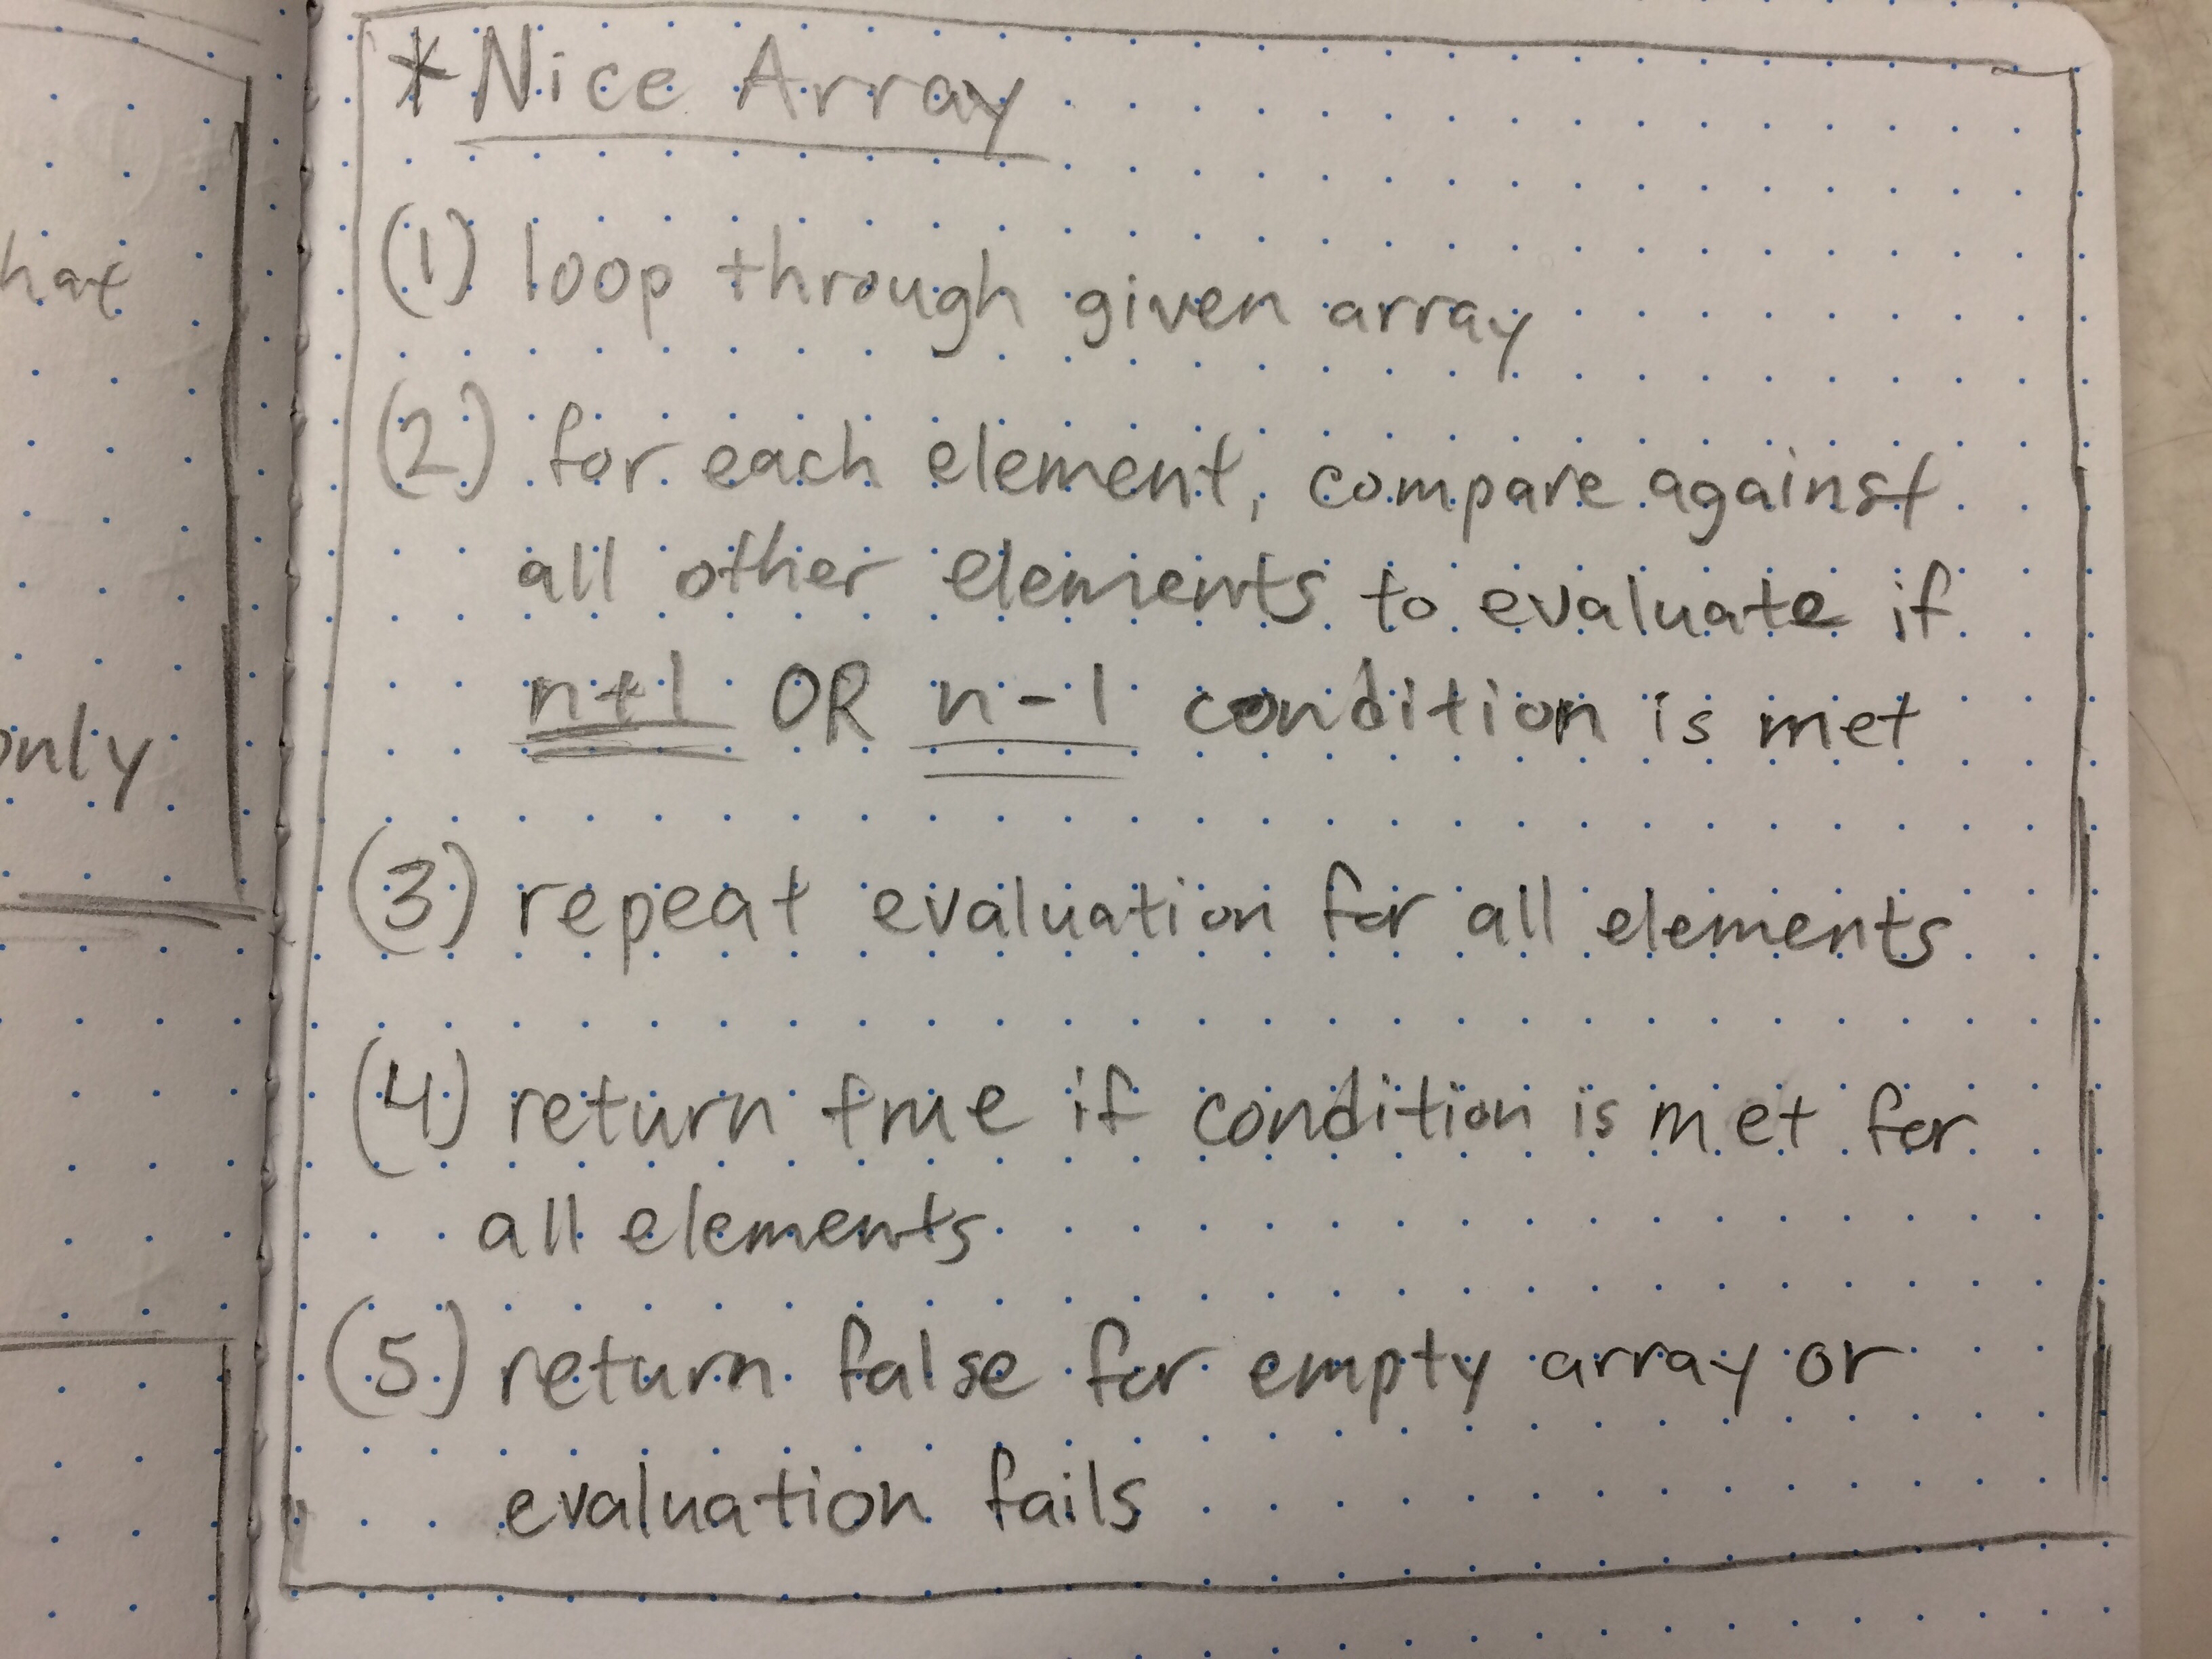 *Nice Array
(1) loop through given array
(2) for each element, compare against
all other elements to evaluate if
n+1 OR n-1 condition is met
(3) repeat evaluation for all elements
(4) return true if condition is met for
all elements
(5) return false for empty array or
evaluation fails
hat
only